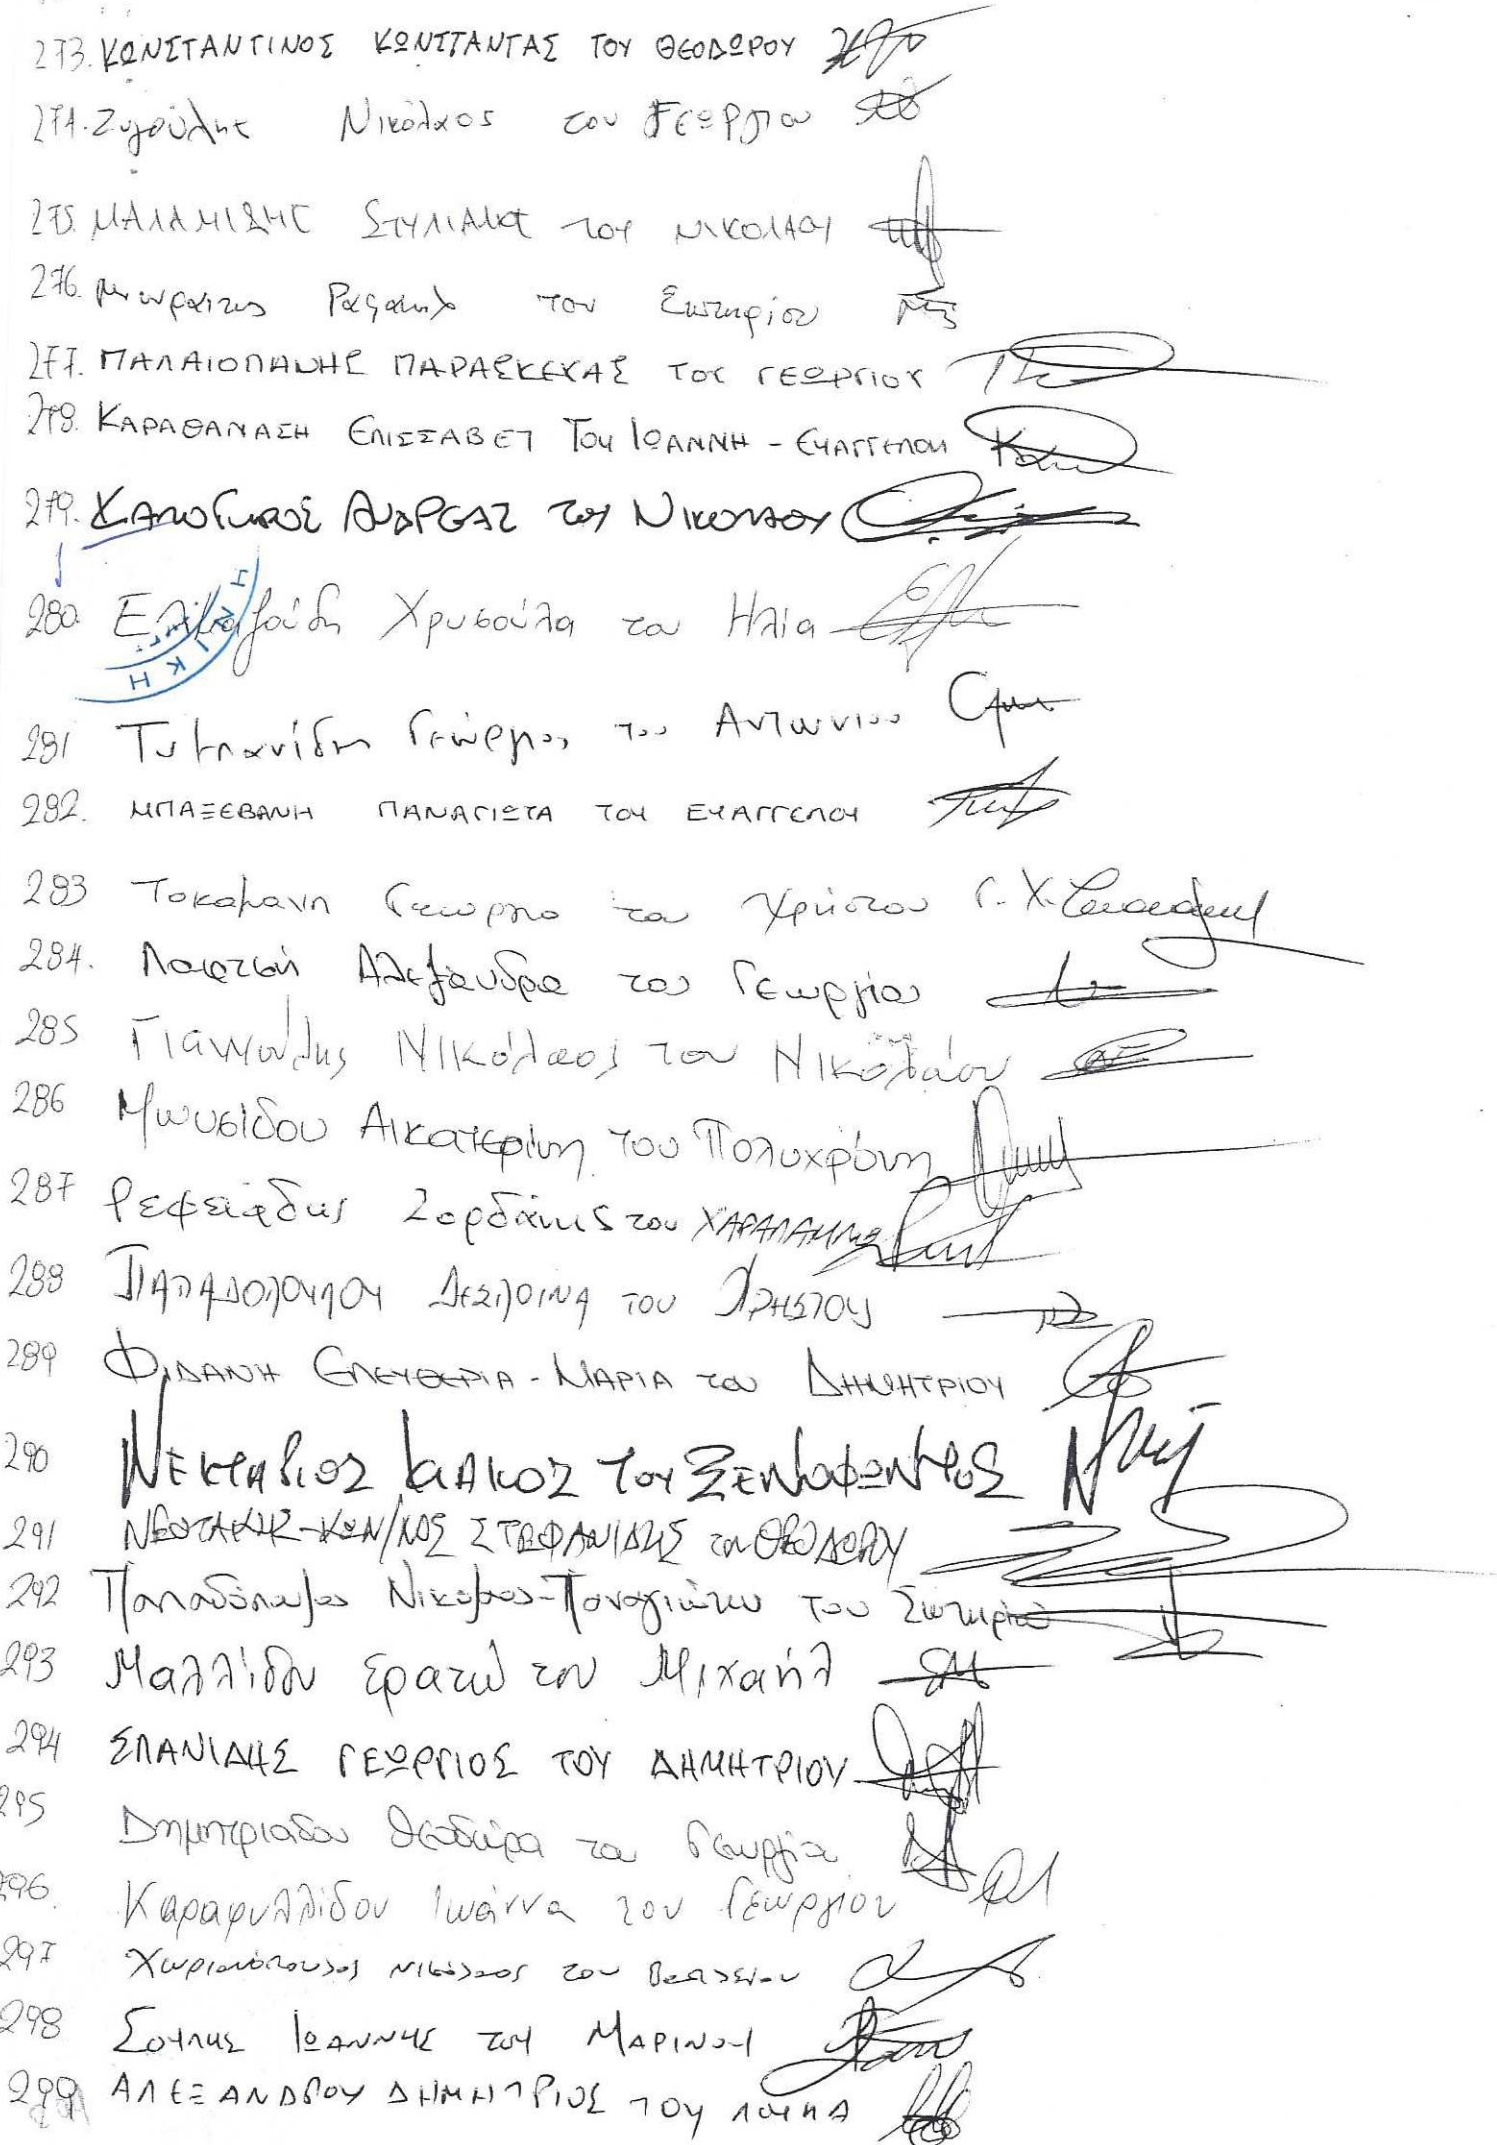 273. ΚΩΝΣΤΑΝΤΙΝΟΣ ΚΩΝΣΤΑΝΤΑΣ ΤΟΥ ΘΕΟΔΩΡΟΥ
274. Ζυγούλης Νικόλαος του ΓΕΩΡΓΙου
275. ΜΑΛΑΜΙΔΗΣ ΤΟΥ ΝΙΚΟΛΑΟΥ
276. Μωραίτης Ραφαήλ του Σωτηρίου
277. ΠΑΛΑΙΟΠΑΝΗΣ ΠΑΡΑΣΚΕΥΑΣ ΤΟΥ ΓΕΩΡΓΙΟΥ
278. ΚΑΡΑΘΑΝΑΣΗ ΕΛΙΣΣΑΒΕΤ ΤΟΥ ΙΩΑΝΝΗ - ΕΥΑΓΓΕΛΟΥ
279. ΑΝΔΡΕΑΣ ΤΟΥ ΝΙΚΟΛΑΟΥ
280. Χρυσούλα του Ηλία
281 Γεώργιος του Αντωνίου
282. ΜΠΑΞΕΒΑΝΗ ΠΑΝΑΓΙΩΤΑ ΤΟΥ ΕΥΑΓΓΕΛΟΥ
283 Τοκαμανη Γεωργια του Χρήστου
284. Λαφτσή Αλεξάνδρα του Γεωργίου
285 Γιαννούλης Νικόλαος του Νικολάου
286 Μωυσίδου Αικατερίνη του Πολυχρόνη
287 Ρεφειάδης Ιορδάνης του ΧΑΡΑΛΑΜΠΟ
288 ΠΑΠΑΔΟΠΟΥΛΟΥ ΔΕΣΠΟΙΝΑ ΤΟΥ ΧΡΗΣΤΟΥ
289 ΦΙΔΑΝΗ ΕΛΕΥΘΕΡΙΑ - ΜΑΡΙΑ του ΔΗΜΗΤΡΙΟΥ
290 ΝΕΚΤΑΡΙΟΣ ΤΟΥ ΞΕΝΟΦΩΝΤΟΣ
291 ΚΩΝ/ΝΟΣ ΣΤΕΦΑΝΙΔΗΣ του ΘΕΟΔΩΡΟΥ
292 Παπαδόπουλος Νικόλαος-Παναγιώτης του Σωτηρίου
293 Μαλλίδου Ερατώ του Μιχαήλ
294 ΣΠΑΝΙΔΗΣ ΓΕΩΡΓΙΟΣ ΤΟΥ ΔΗΜΗΤΡΙΟΥ
295 Δημητριαδου Θεοδώρα του Γεωργίου
296. Καραφυλλίδου Ιωάννα του Γεωργίου
297 Χωριανόπουλος Νικόλαος του Βασιλείου
298 ΣΟΥΛΗΣ ΙΩΑΝΝΗΣ ΤΟΥ ΜΑΡΙΝΟΥ
299 ΑΛΕΞΑΝΔΡΟΥ ΔΗΜΗΤΡΙΟΣ ΤΟΥ ΛΟΥΚΑ